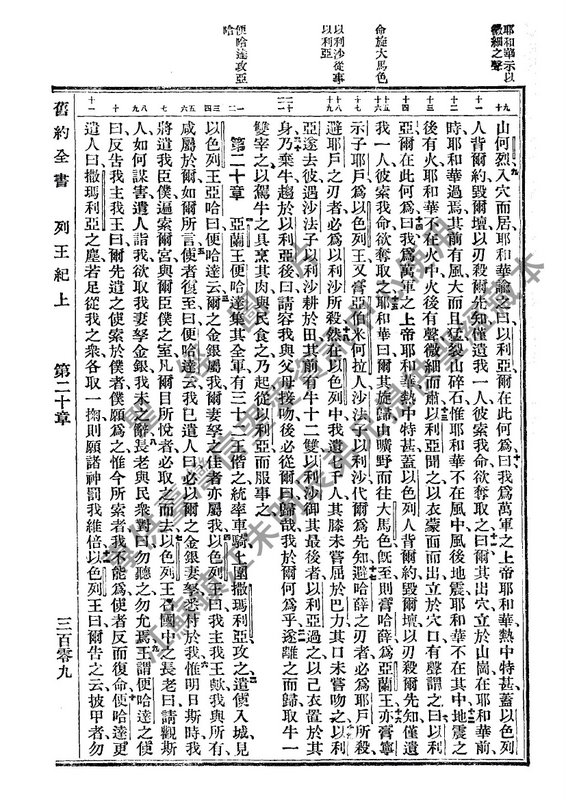 耶和華示以
微細之聲
命旋大馬色
以利沙從事
以利亞
便哈達攻亞
哈
山何烈入穴而居耶和華諭之曰以利亞爾在此何爲曰我爲萬軍之上帝耶和華熱中特甚蓋以色列
人背爾約毀爾壇以刃殺爾先知僅遺我一人彼索我命欲奪取之曰爾其出穴立於山崗在耶和華前
時耶和華過焉其前有風大而且猛裂山碎石惟耶和華不在風中風後地震耶和華不在其中地震之
後有火耶和華不在火中火後有聲微細而肅以利亞聞之以衣蒙面而出立於穴口有聲謂之曰以利
亞爾在此何爲曰我爲萬軍之上帝耶和華熱中特甚蓋以色列人背爾約毀爾壇以刃殺爾先知僅遺
我一人彼索我命欲奪取之耶和華曰爾其旋歸由曠野而往大馬色旣至則膏哈薛爲亞蘭王亦膏寧
示子耶戶爲以色列王又膏亞伯米何拉人沙法子以利沙代爾爲先知避哈薛之刃者必爲耶戶所殺
避耶戶之刃者必爲以利沙所殺然在以色列中我遺七千人其膝未嘗屈於巴力其口未嘗吻之以利
亞遂去彼遇沙法子以利沙耕於田其前有牛十二雙以利沙御其最後者以利亞過之以己衣置於其
身乃棄牛趨於以利亞後曰請容我與父母接吻後必從爾曰歸哉我於爾何爲乎遂離之而歸取牛一
雙宰之以駕牛之具烹其肉與民食之乃起從以利亞而服事之
第二十章 亞蘭王便哈達集其全軍有三十二王偕之統率車騎上圍撒瑪利亞攻之遣使入城見
以色列王亞哈曰便哈達云爾之金銀屬我爾妻孥之佳者亦屬我以色列王曰我主我王歟我與所有
咸屬於爾如爾所言使者復至曰便哈達云我已遣人曰必以爾之金銀妻孥悉付於我惟明日斯時我
將遣我臣僕遍索爾宮與爾臣僕之室凡爾目所悅者必取之而去以色列王召國中之長老曰請觀斯
人如何謀害遣人詣我欲取我妻孥金銀我未之辭長老與民衆對曰勿聽之勿允焉王謂便哈達之使
曰反告我主我王曰爾先遣之使索於僕者僕願爲之惟今所索者我不能爲使者反而復命便哈達更
遣人曰撒瑪利亞之塵若足從我之衆各取一掬則願諸神罰我維倍以色列王曰爾告之云披甲者勿
舊約全書 列王紀上 第二十章 三百零九